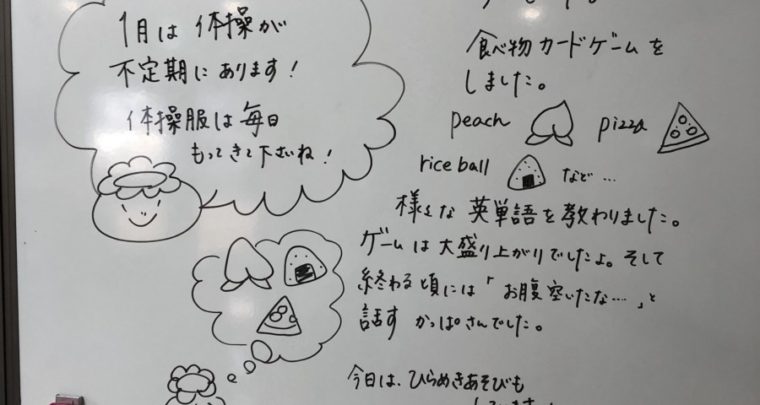 1月は 体操が
不定期にあります!
体操服は毎日
もってきて下さいね!
食べ物カードゲームを
しました。
peach
pizza
rice ball
など…
様々な 英単語を教わりました。
ゲームは大盛り上がりでしたよ。そして
終わる頃には「お腹空いたな…」と
話す かっぱさんでした。
今日は、ひらめきあそびも